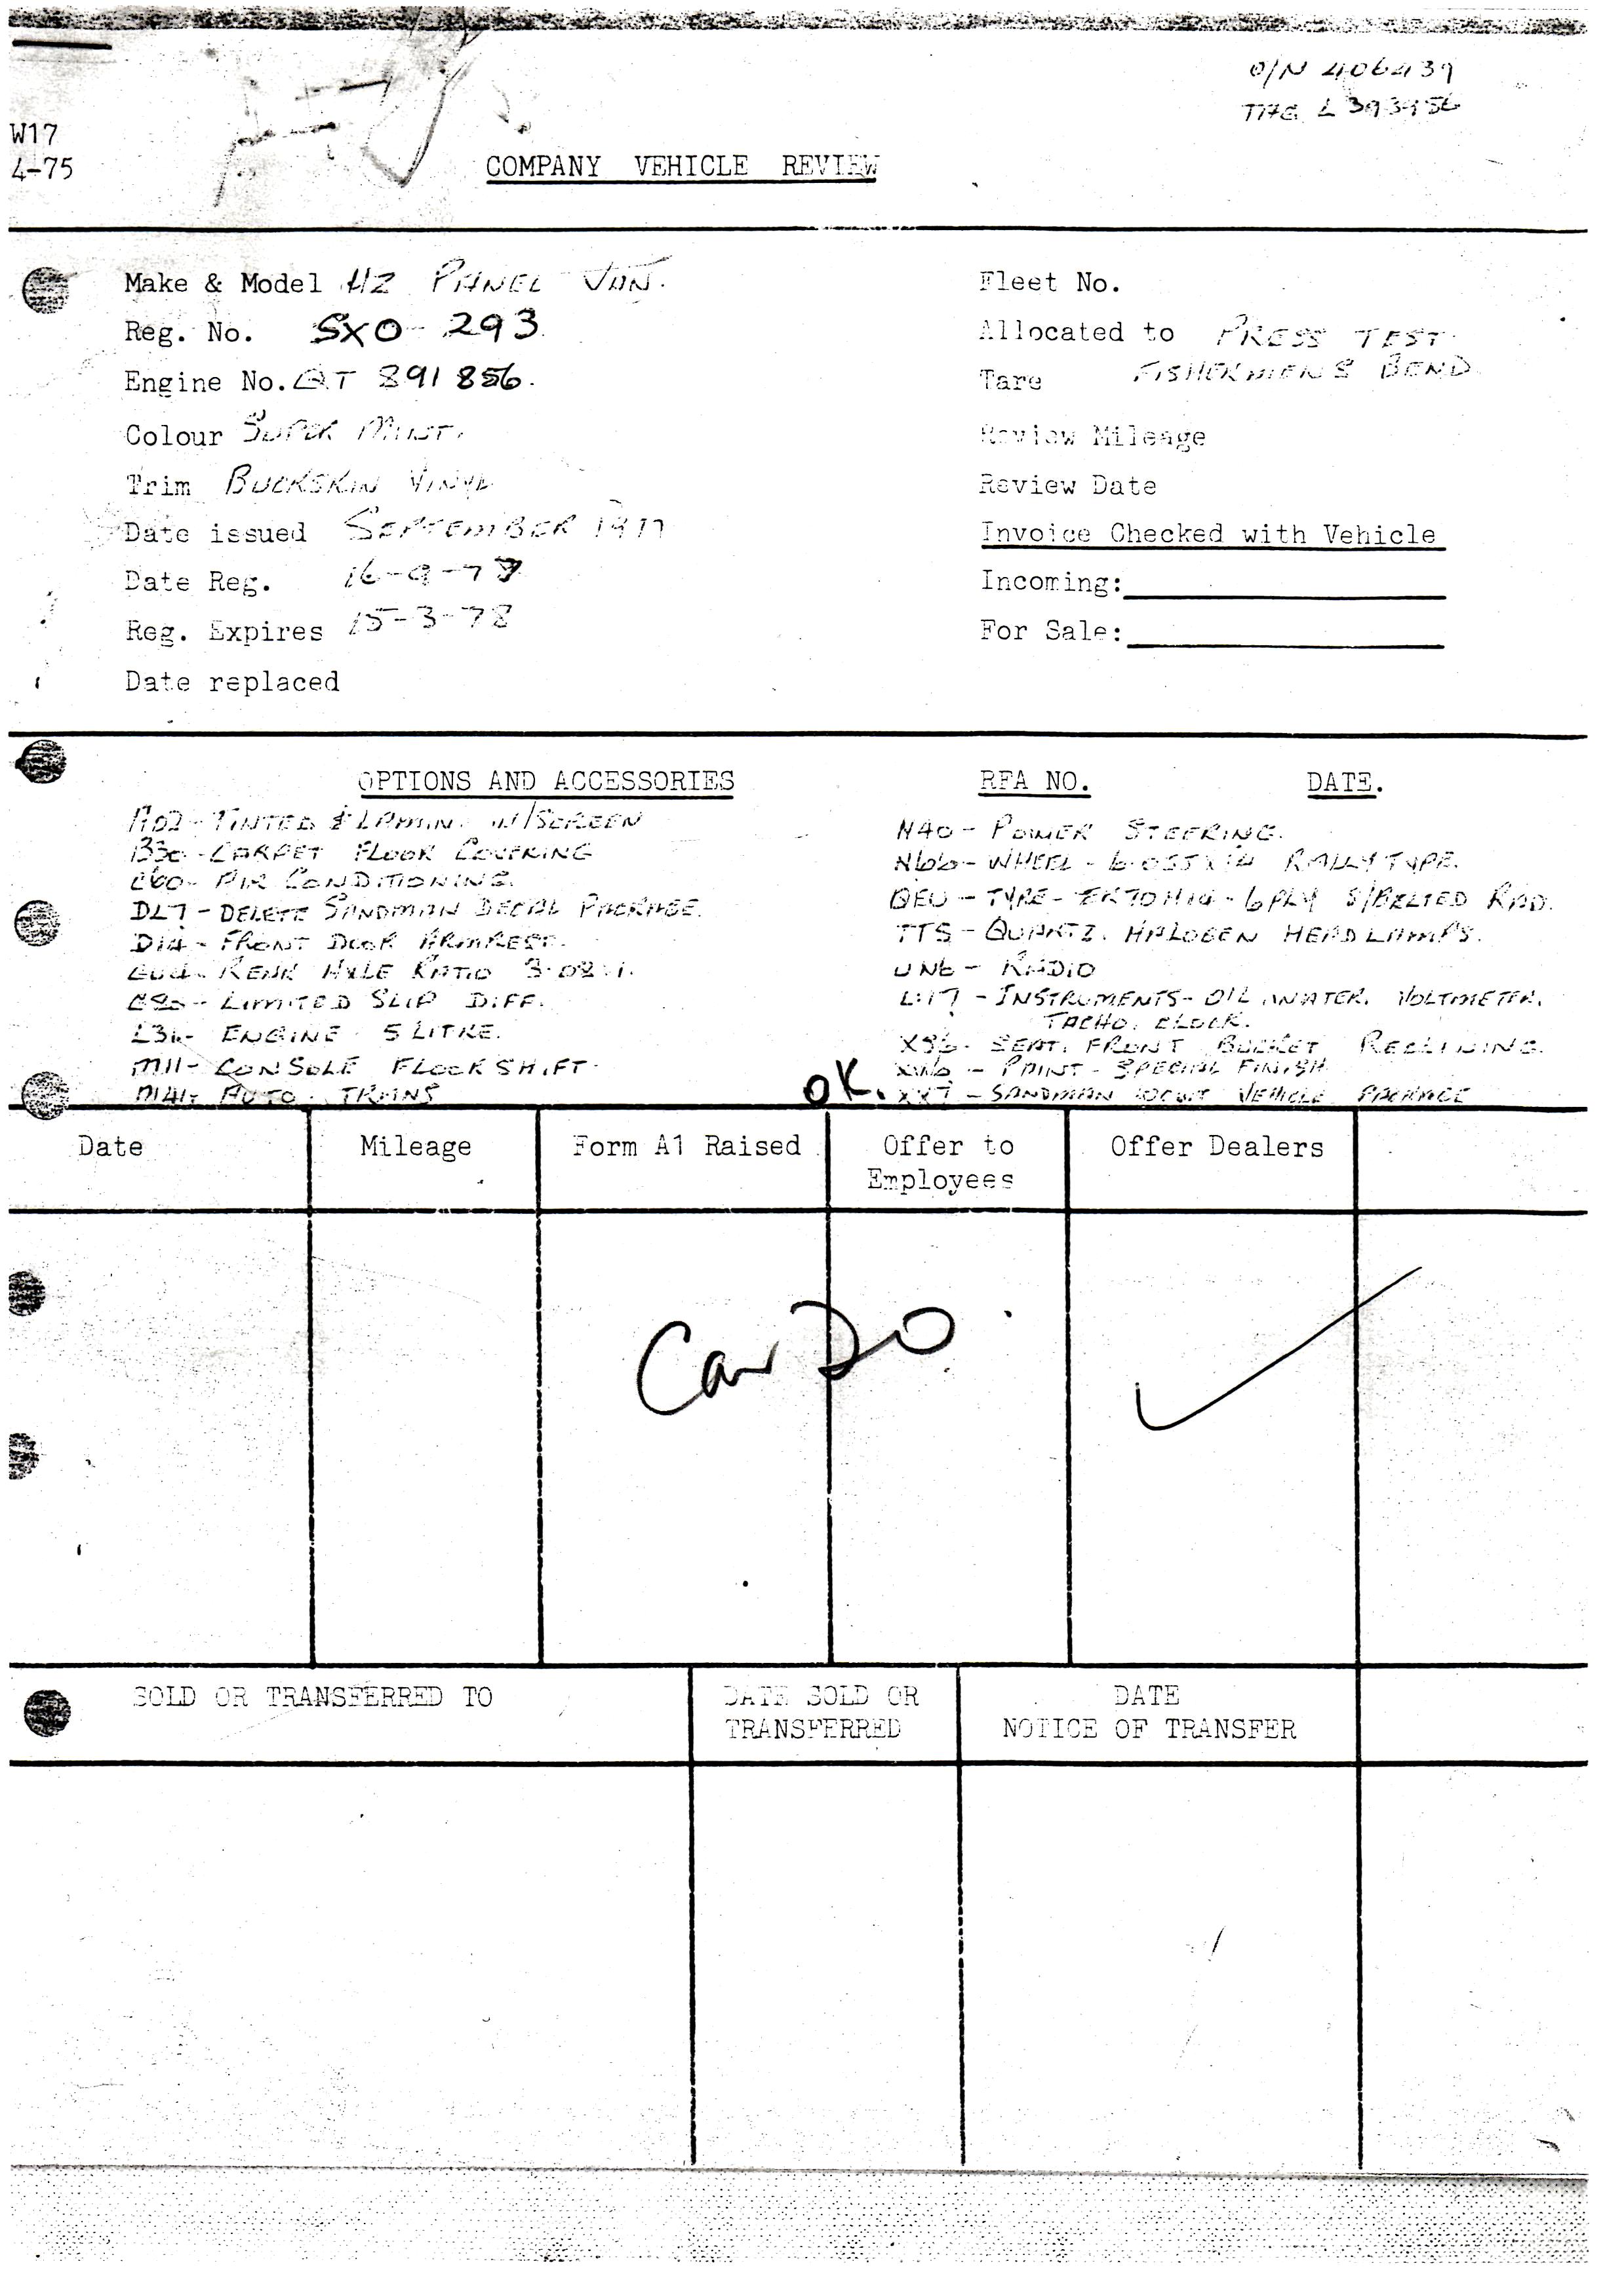 O/N 406439
L 393456
W17
4-75
COMPANY VEHICLE REVIEW
Make & Model HZ PANEL VAN.
Fleet No.
Reg. No. SXO-293
Allocated to PRESS TEST.
FISHERMENS BEND
Engine No. QT 891856.
Tare
Colour SUPER MINT.
Review Mileage
Trim BUCKSKIN VINYL
Review Date
Date issued SEPTEMBER 1977
Invoice Checked with Vehicle
Date Reg. 16-9-77
Incoming:
Reg. Expires 15-3-78
For Sale:
Date replaced
OPTIONS AND ACCESSORIES RFA NO. DATE.
A02-TINTED & LAMIN. W/SCREEN
B30-CARPET FLOOR COVERING
C60-AIR CONDITIONING.
DL7-DELETE SANDMAN DECAL PACKAGE.
D14-FRONT DOOR ARMREST.
REAR AXLE RATIO 3.08:1.
G80-LIMITED SLIP DIFF.
L31-ENGINE 5 LITRE.
M11-CONSOLE FLOORSHIFT.
M41-AUTO. TRANS
N40-POWER STEERING.
N66-WHEEL-6.0JJX14 RALLY TYPE.
QEU-TYRE-ER70H14-6PLY S/BELTED RAD.
TT5-QUARTZ. HALOGEN HEADLAMPS.
UN6-RADIO
L17-INSTRUMENTS-OIL WATER. VOLTMETER.
TACHO. CLOCK.
SEAT. FRONT BUCKET RECLINING.
PAINT-SPECIAL FINISH
OK. XX7-SANDMAN VEHICLE PACKAGE
Date Mileage Form A1 Raised Offer to Offer Dealers
Employees
Car 20
SOLD OR TRANSFERRED TO DATE SOLD OR DATE
TRANSFERRED NOTICE OF TRANSFER